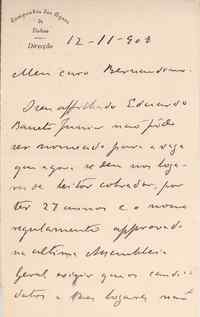 Companhia das Aguas
de
Lisboa
Direcção
12-11-902
Meu caro Bernardino.
O seu affilhado Eduardo
Barreto Junior não póde
ser nomeado para a vaga
que agora se deu nos loga-
res de leitor cobrador, por
ter 27 annos e o novo
regulamento approvado
na ultima Assembleia
Geral exigir que os candi-
datos a esses logares não